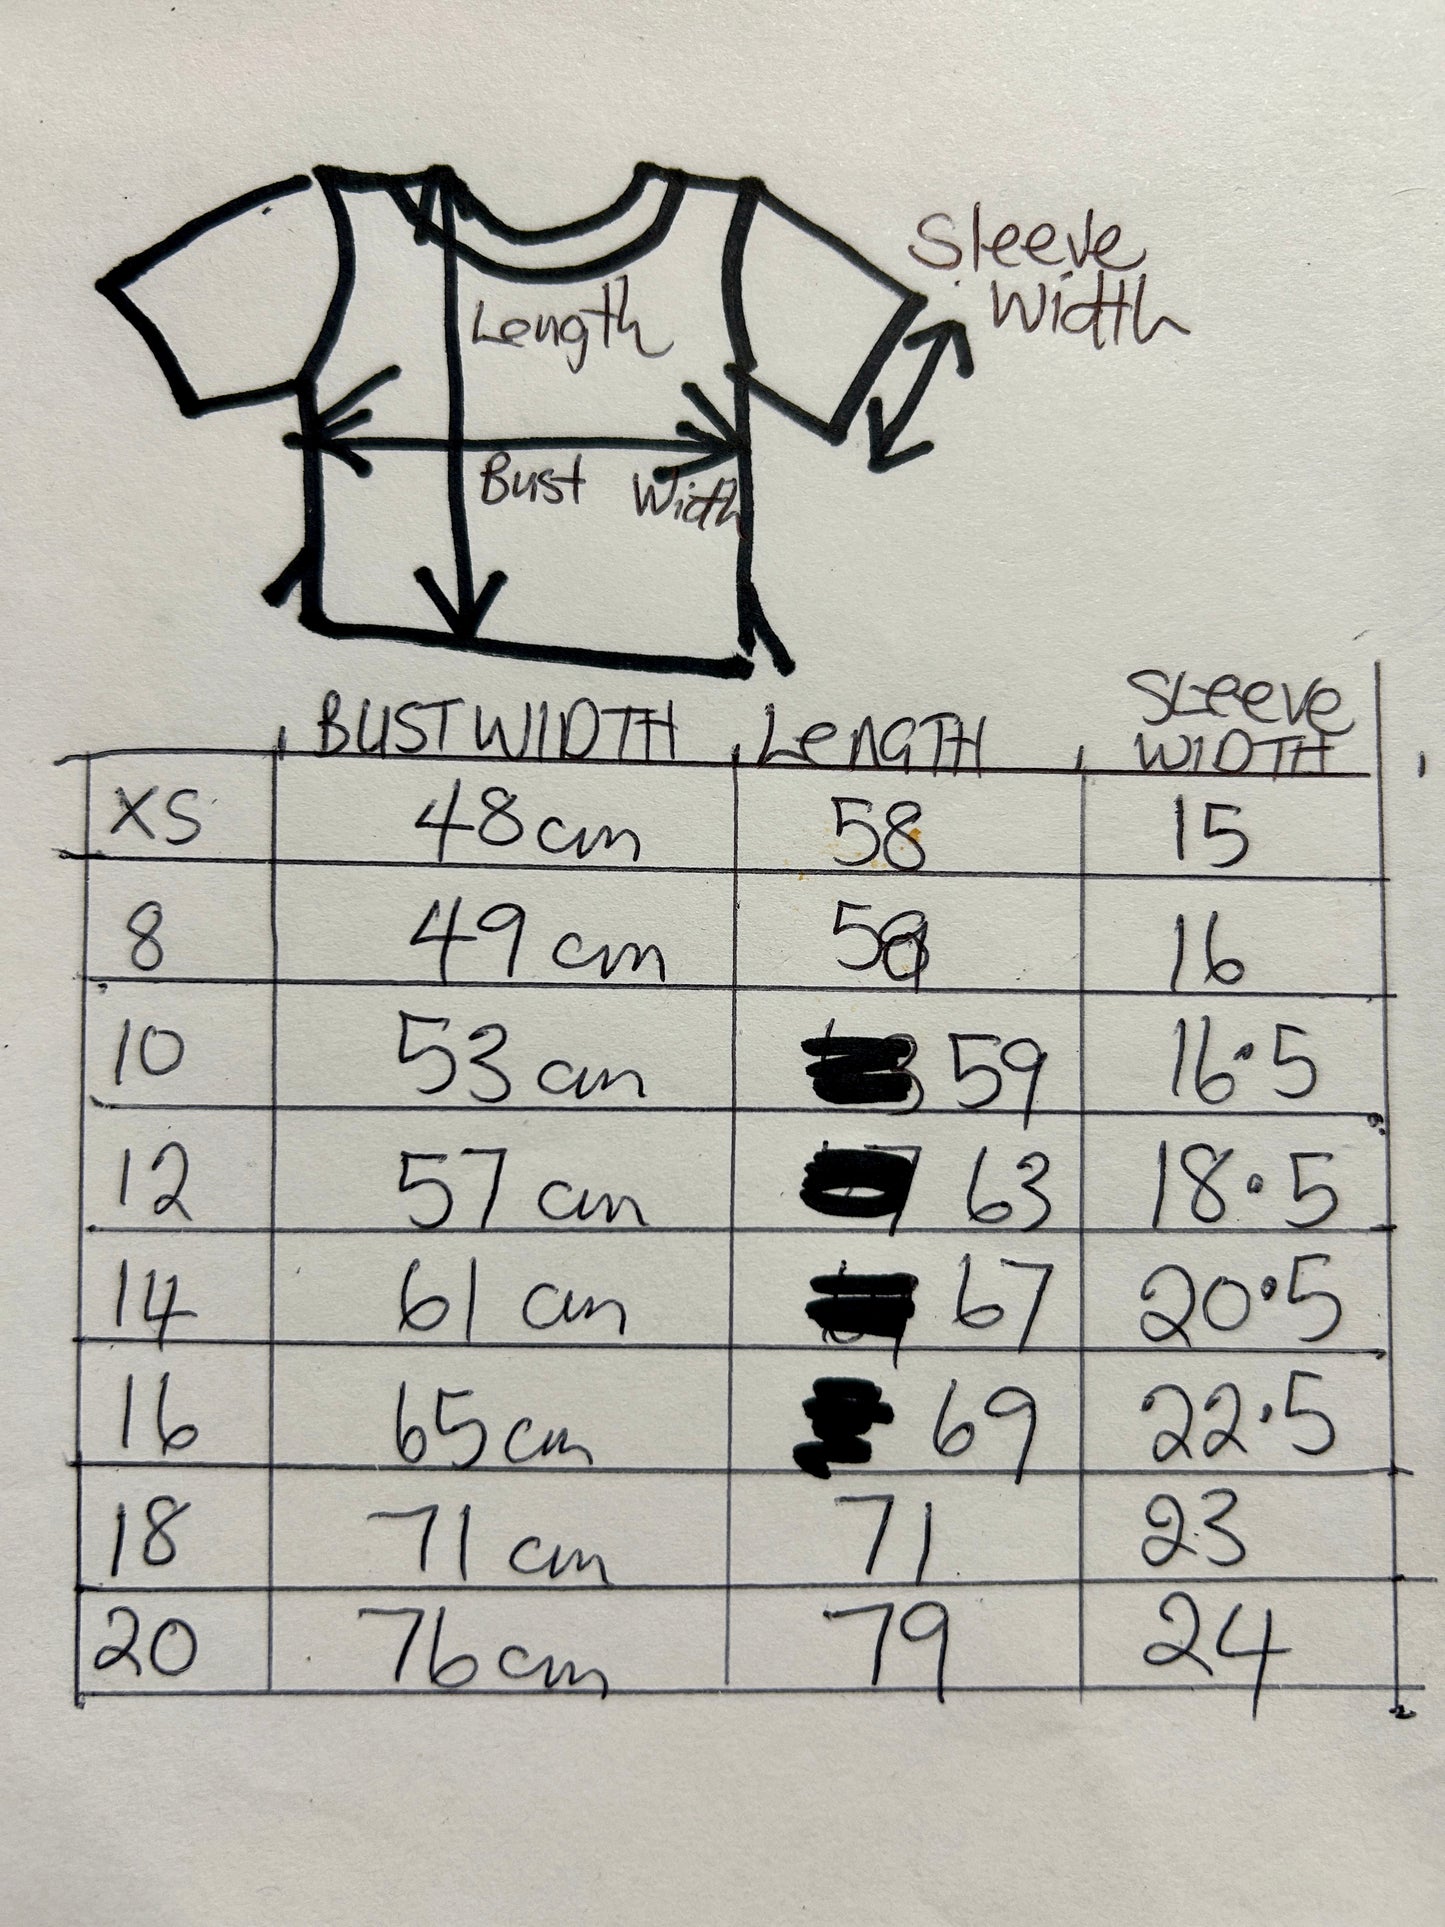 Sleeve
Width
Length
Bust Width
BUST WIDTH LENGTH SLEEVE WIDTH
XS 48cm 58 15
8 49 cm 16
10 53 cm 59 16.5
12 57 cm 63 18.5
14 61 cm 67 20.5
16 65cm 69 22.5
18 71 cm 71 23
20 76cm 79 24